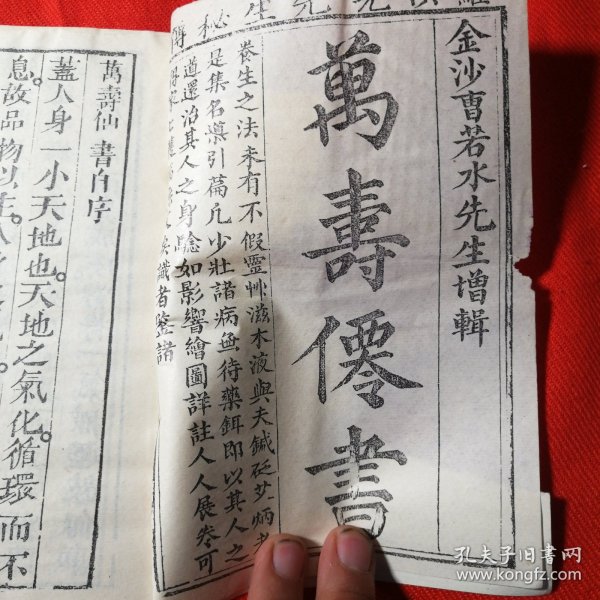 羅洪先先生秘傳
金沙曹若水先生增輯
萬壽僊書
養生之法未有不假靈艸滋木液與夫鍼砭艾炳者
是集名導引篇凡少壯諸病無待藥餌即以其人之
道還治其人之身驗如影響繪圖詳註人人展卷可
識者鑒諸
萬壽仙書自序
蓋人身一小天地也。天地之氣化循環而不
息。故品物以生。
孔夫子旧书网
www.kongfz.com